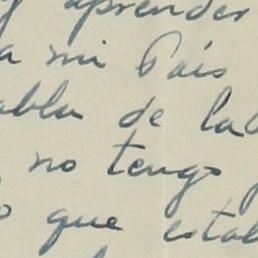 y aprender
a mi País
abla de la
no tengo
o que estab